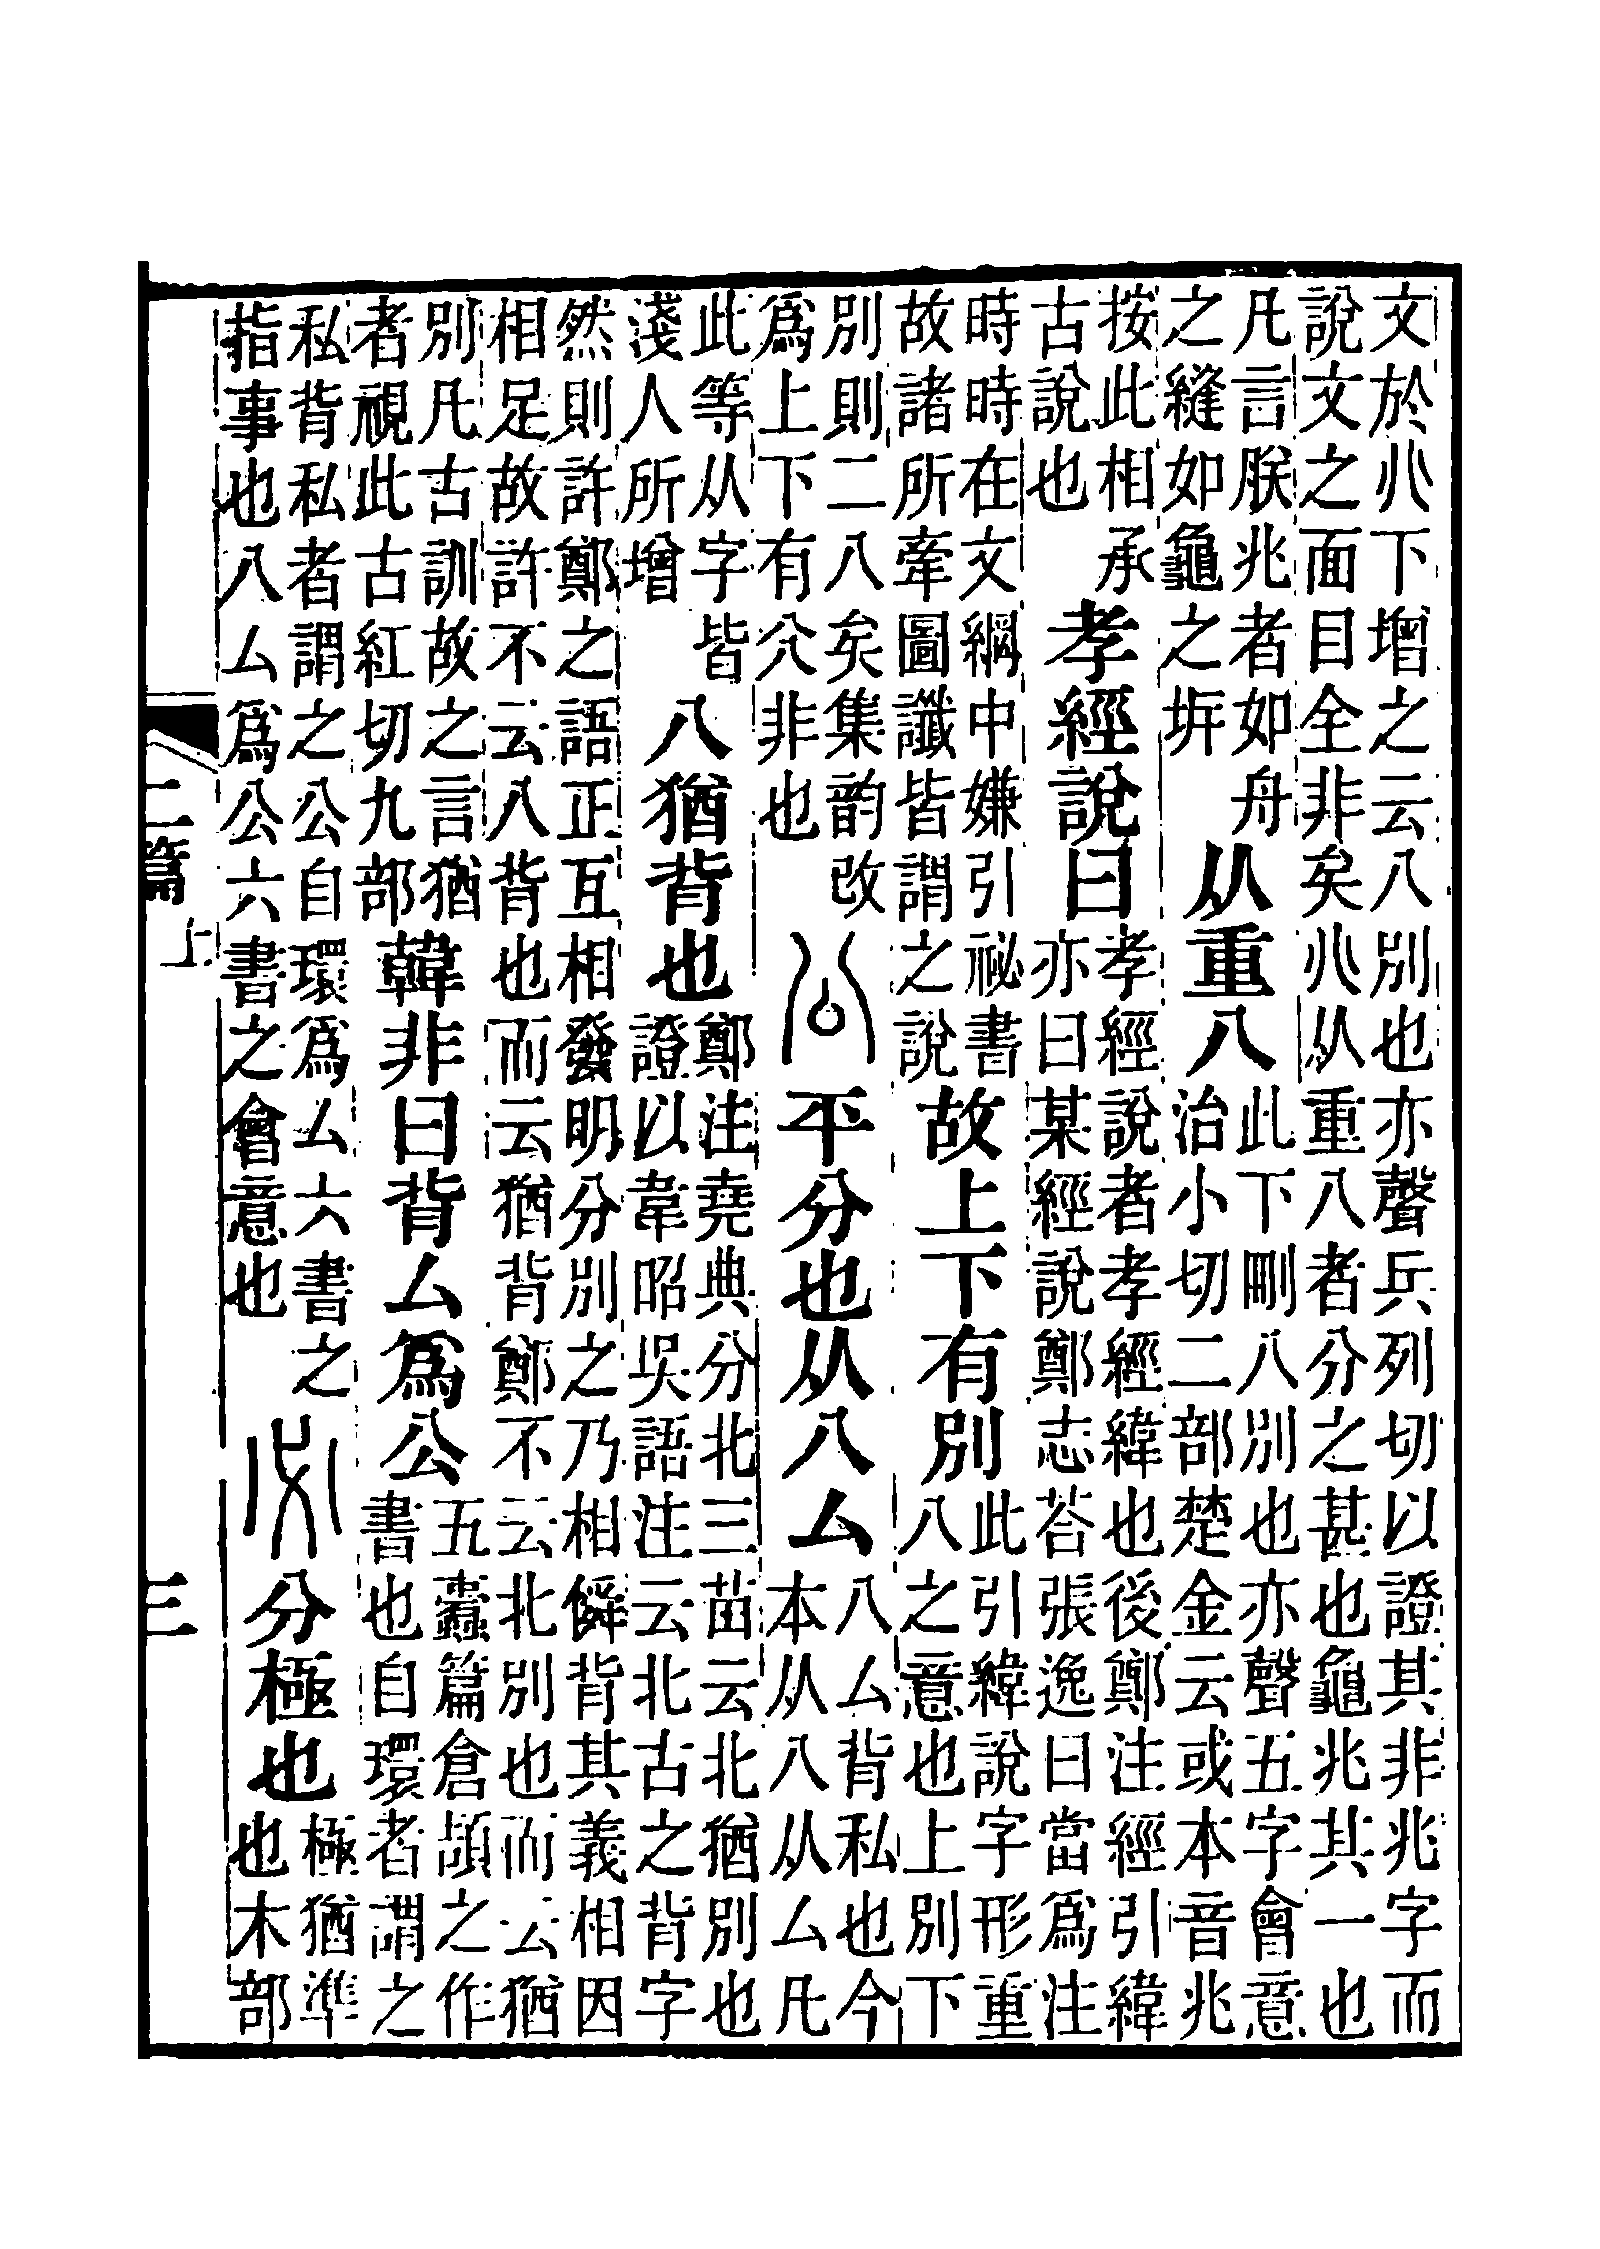 文於𠔁下增之云八別也亦聲兵列切以證其非兆字而
說文之面目全非矣𠔁从重八者分之甚也龜兆其一也
凡言朕兆者如舟
之縫如龜之坼
从重八
此下刪八別也亦聲五字會意
治小切二部楚金云或本音兆
按此相承
古說也
孝經說曰
孝經說者孝經緯也後鄭注經引緯
亦曰某經說鄭志荅張逸曰當爲注
時時在文綱中嫌引祕書
故諸所牽圖讖皆謂之說
故上下有別
此引緯說字形重
八之意也上別下
別則二八矣集韵改
爲上下有𠔁非也
公
平分也从八厶
八厶背私也今
本从八从厶凡
此等从字皆
淺人所增
八猶背也
鄭注堯典分北三苗云北猶別也
證以韋昭吳語注云北古之背字
然則許鄭之語正互相發明分別之乃相僢背其義相因
相足故許不云八背也而云猶背鄭不云北別也而云猶
別凡古訓故之言猶
者視此古紅切九部
韓非曰背厶爲公
五蠹篇倉頡之作
書也自環者謂之
私背私者謂之公自環爲厶六書之
指事也八厶爲公六書之會意也
必
分極也
極猶準
也木部
二篇上
三